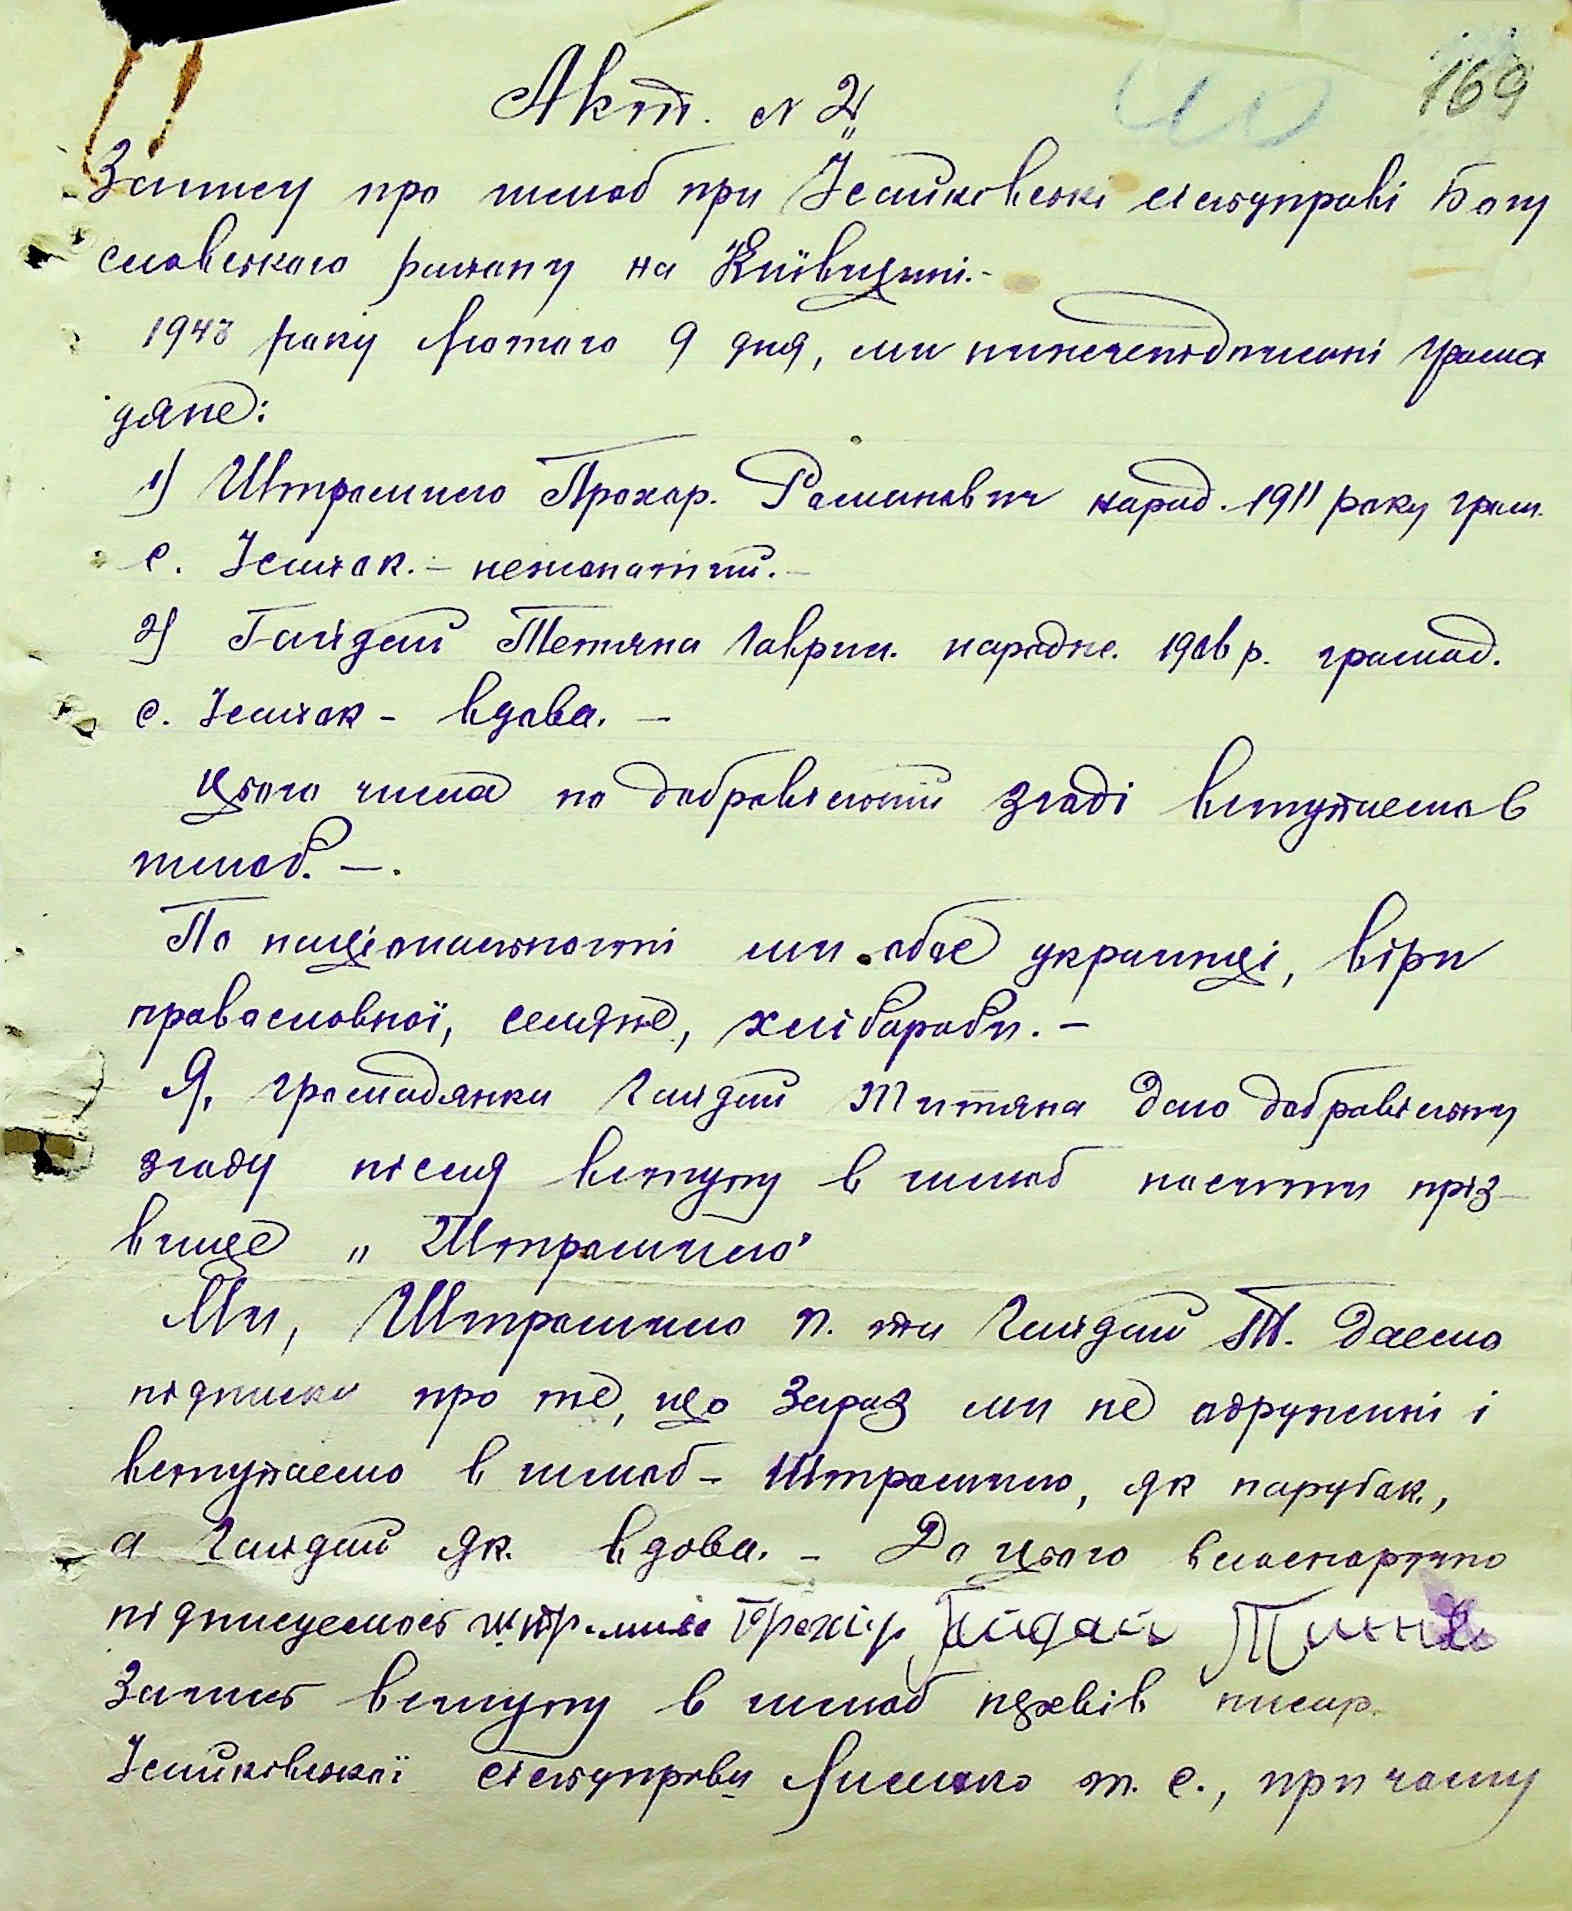 169
Акт. № 2
Запису про шлюб при Ісайківські сільуправі Богу
славського району на Київщині.-
1943 року Лютого 9 дня, ми нижчепідписані грома
дяне:
1) Штромило Прохор. Романович народ. 1911 року гром.
с. Ісайок. - нежонатий. -
2) Гайдай Тетяна Гаврил. народж. 1906 р. громад.
с. Ісайок - вдова. -
Цього числа по добровільній згоді вступаємо в
шлюб. -.
По національності ми обоє українці, віри
православної, селяне, хлібороби. -
Я, громадянка Гайдай Титяна даю добровільну
згоду після вступу в шлюб носити пріз-
вище „Штромило"
Ми, Штромило П. та Гайдай Т. даємо
підписку про те, що зараз ми не одружині і
вступаємо в шлюб - Штромило, як парубок,
а Гайдай як вдова. - До цього власноручно
підписуємось Штромило Прохір Гайдай
Запись вступу в шлюб провів писар
Ісайківської сільуправи т. С., при чому